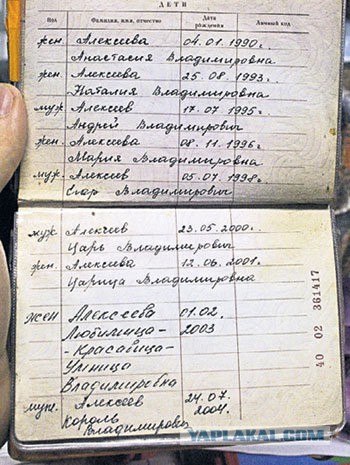 ДЕТИ
Пол Фамилия, имя, отчество Дата рождения Личный код
жен. Алексеева 04.01.1990г.
Анастасия Владимировна
жен. Алексеева 25.08.1993г.
Наталия Владимировна
муж. Алексеев 17.07.1995г.
Андрей Владимирович
жен. Алексеева 08.11.1996г.
Мария Владимировна
муж. Алексеев 05.07.1998г.
Егор Владимирович
муж. Алексеев 23.05.2000г.
Царь Владимирович
жен. Алексеева 12.06.2001г.
Царица Владимировна
жен Алексеева 01.02.
Любимица- 2003
-Красавица-
Умница
Владимировна
муж. Алексеев 24.07.
Король 2004.
Владимирович
40 02 361417
YAPLAKAL.COM